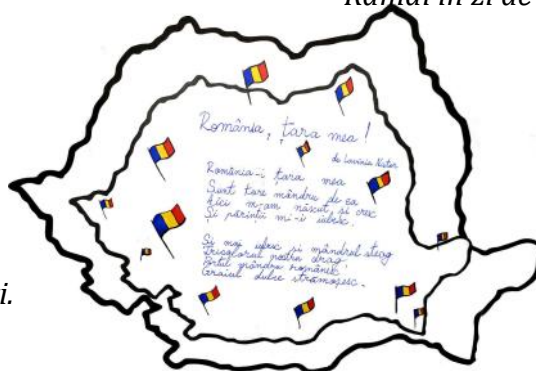 Rămâi în zi de
România, țara mea!
de Lavinia Nistor
România-i țara mea
Sunt tare mândru de ea
Aici m-am născut și cresc
Și părinții mi-i iubesc.
Și mai iubesc și mândrul steag
Tricolorul nostru drag,
Portul mândru românesc
Graiul dulce strămoșesc.
i.